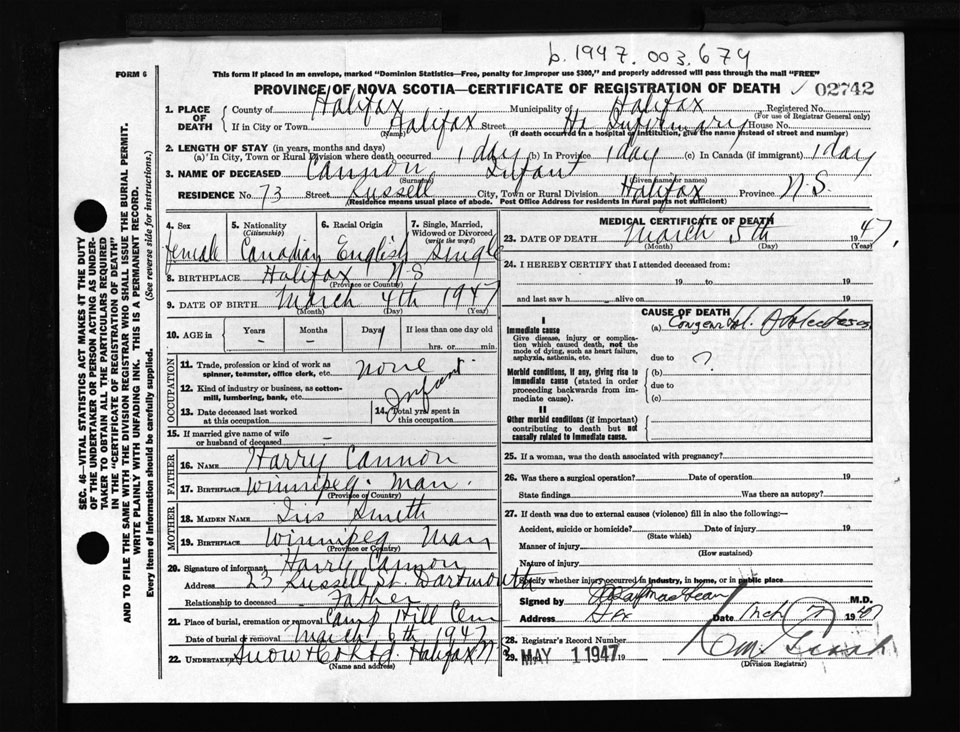 b. 1947. 003.679
FORM 6
This form if placed in an envelope, marked "Dominion Statistics—Free, penalty for improper use $300," and properly addressed will pass through the mail "FREE"
PROVINCE OF NOVA SCOTIA—CERTIFICATE OF REGISTRATION OF DEATH
02742
1. PLACE OF DEATH
County of Halifax Municipality of Halifax Registered No.
(For use of Registrar General only)
If in City or Town Halifax Street Hx Infirmary House No.
(Name) (If death occurred in a hospital or institution, give the name instead of street and number)
2. LENGTH OF STAY (in years, months and days)
(a) In City, Town or Rural Division where death occurred 1 day (b) In Province 1 day (c) In Canada (if immigrant) 1 day
3. NAME OF DECEASED Cannon Infant
(Surname) (Given name or names)
RESIDENCE No. 73 Street Russell City, Town or Rural Division Halifax Province N.S.
(Residence means usual place of abode. Post Office Address for residents in rural parts not sufficient)
4. Sex
female
5. Nationality (Citizenship)
Canadian
6. Racial Origin
English
7. Single, Married, Widowed or Divorced (write the word)
Single
8. BIRTHPLACE Halifax N S
(Province or Country)
9. DATE OF BIRTH March 4th 1947
(Month) (Day) (Year)
10. AGE in Years Months Days If less than one day old
- - 1 hrs. or min.
OCCUPATION
11. Trade, profession or kind of work as spinner, teamster, office clerk, etc. none
12. Kind of industry or business, as cotton-mill, lumbering, bank, etc. Infant
13. Date deceased last worked at this occupation
14. Total yrs. spent in this occupation
15. If married give name of wife or husband of deceased -
FATHER
16. NAME Harry Cannon
17. BIRTHPLACE Winnipeg. Man.
(Province or Country)
MOTHER
18. MAIDEN NAME Iris Smith
19. BIRTHPLACE Winnipeg Man
(Province or Country)
20. Signature of informant Harry Cannon
Address 23 Russell St. Dartmouth
Relationship to deceased Father
21. Place of burial, cremation or removal Camp Hill Cem
Date of burial or removal March 6th 1947
22. UNDERTAKER Snow & Co Ltd. Halifax N S
(Name and address)
MEDICAL CERTIFICATE OF DEATH
23. DATE OF DEATH March 5th 1947.
(Month) (Day) (Year)
24. I HEREBY CERTIFY that I attended deceased from:
19 to 19
and last saw h alive on 19
CAUSE OF DEATH
I
Immediate cause
Give disease, injury or complication which caused death, not the mode of dying, such as heart failure, asphyxia, asthenia, etc.
(a) Congenital Atelectasis
due to ?
Morbid conditions, if any, giving rise to immediate cause (stated in order proceeding backwards from immediate cause).
(b)
due to
(c)
II
Other morbid conditions (if important) contributing to death but not causally related to immediate cause.
25. If a woman, was the death associated with pregnancy?
26. Was there a surgical operation? Date of operation 19
State findings Was there an autopsy?
27. If death was due to external causes (violence) fill in also the following:—
Accident, suicide or homicide? Date of injury 19
(State which)
Manner of injury
(How sustained)
Nature of injury
Specify whether injury occurred in industry, in home, or in public place
Signed by MacLean M.D.
Address Hx Date Mch 7 1947
28. Registrar's Record Number
29. MAY 1 1947 19
(Division Registrar)
SEC. 46—VITAL STATISTICS ACT MAKES IT THE DUTY
OF THE UNDERTAKER OR PERSON ACTING AS UNDER-
TAKER TO OBTAIN ALL THE PARTICULARS REQUIRED
IN THE "CERTIFICATE OF REGISTRATION OF DEATH"
AND TO FILE THE SAME WITH THE DIVISION REGISTRAR WHO SHALL ISSUE THE BURIAL PERMIT.
WRITE PLAINLY WITH UNFADING INK. THIS IS A PERMANENT RECORD.
Every item of information should be carefully supplied. (See reverse side for instructions.)